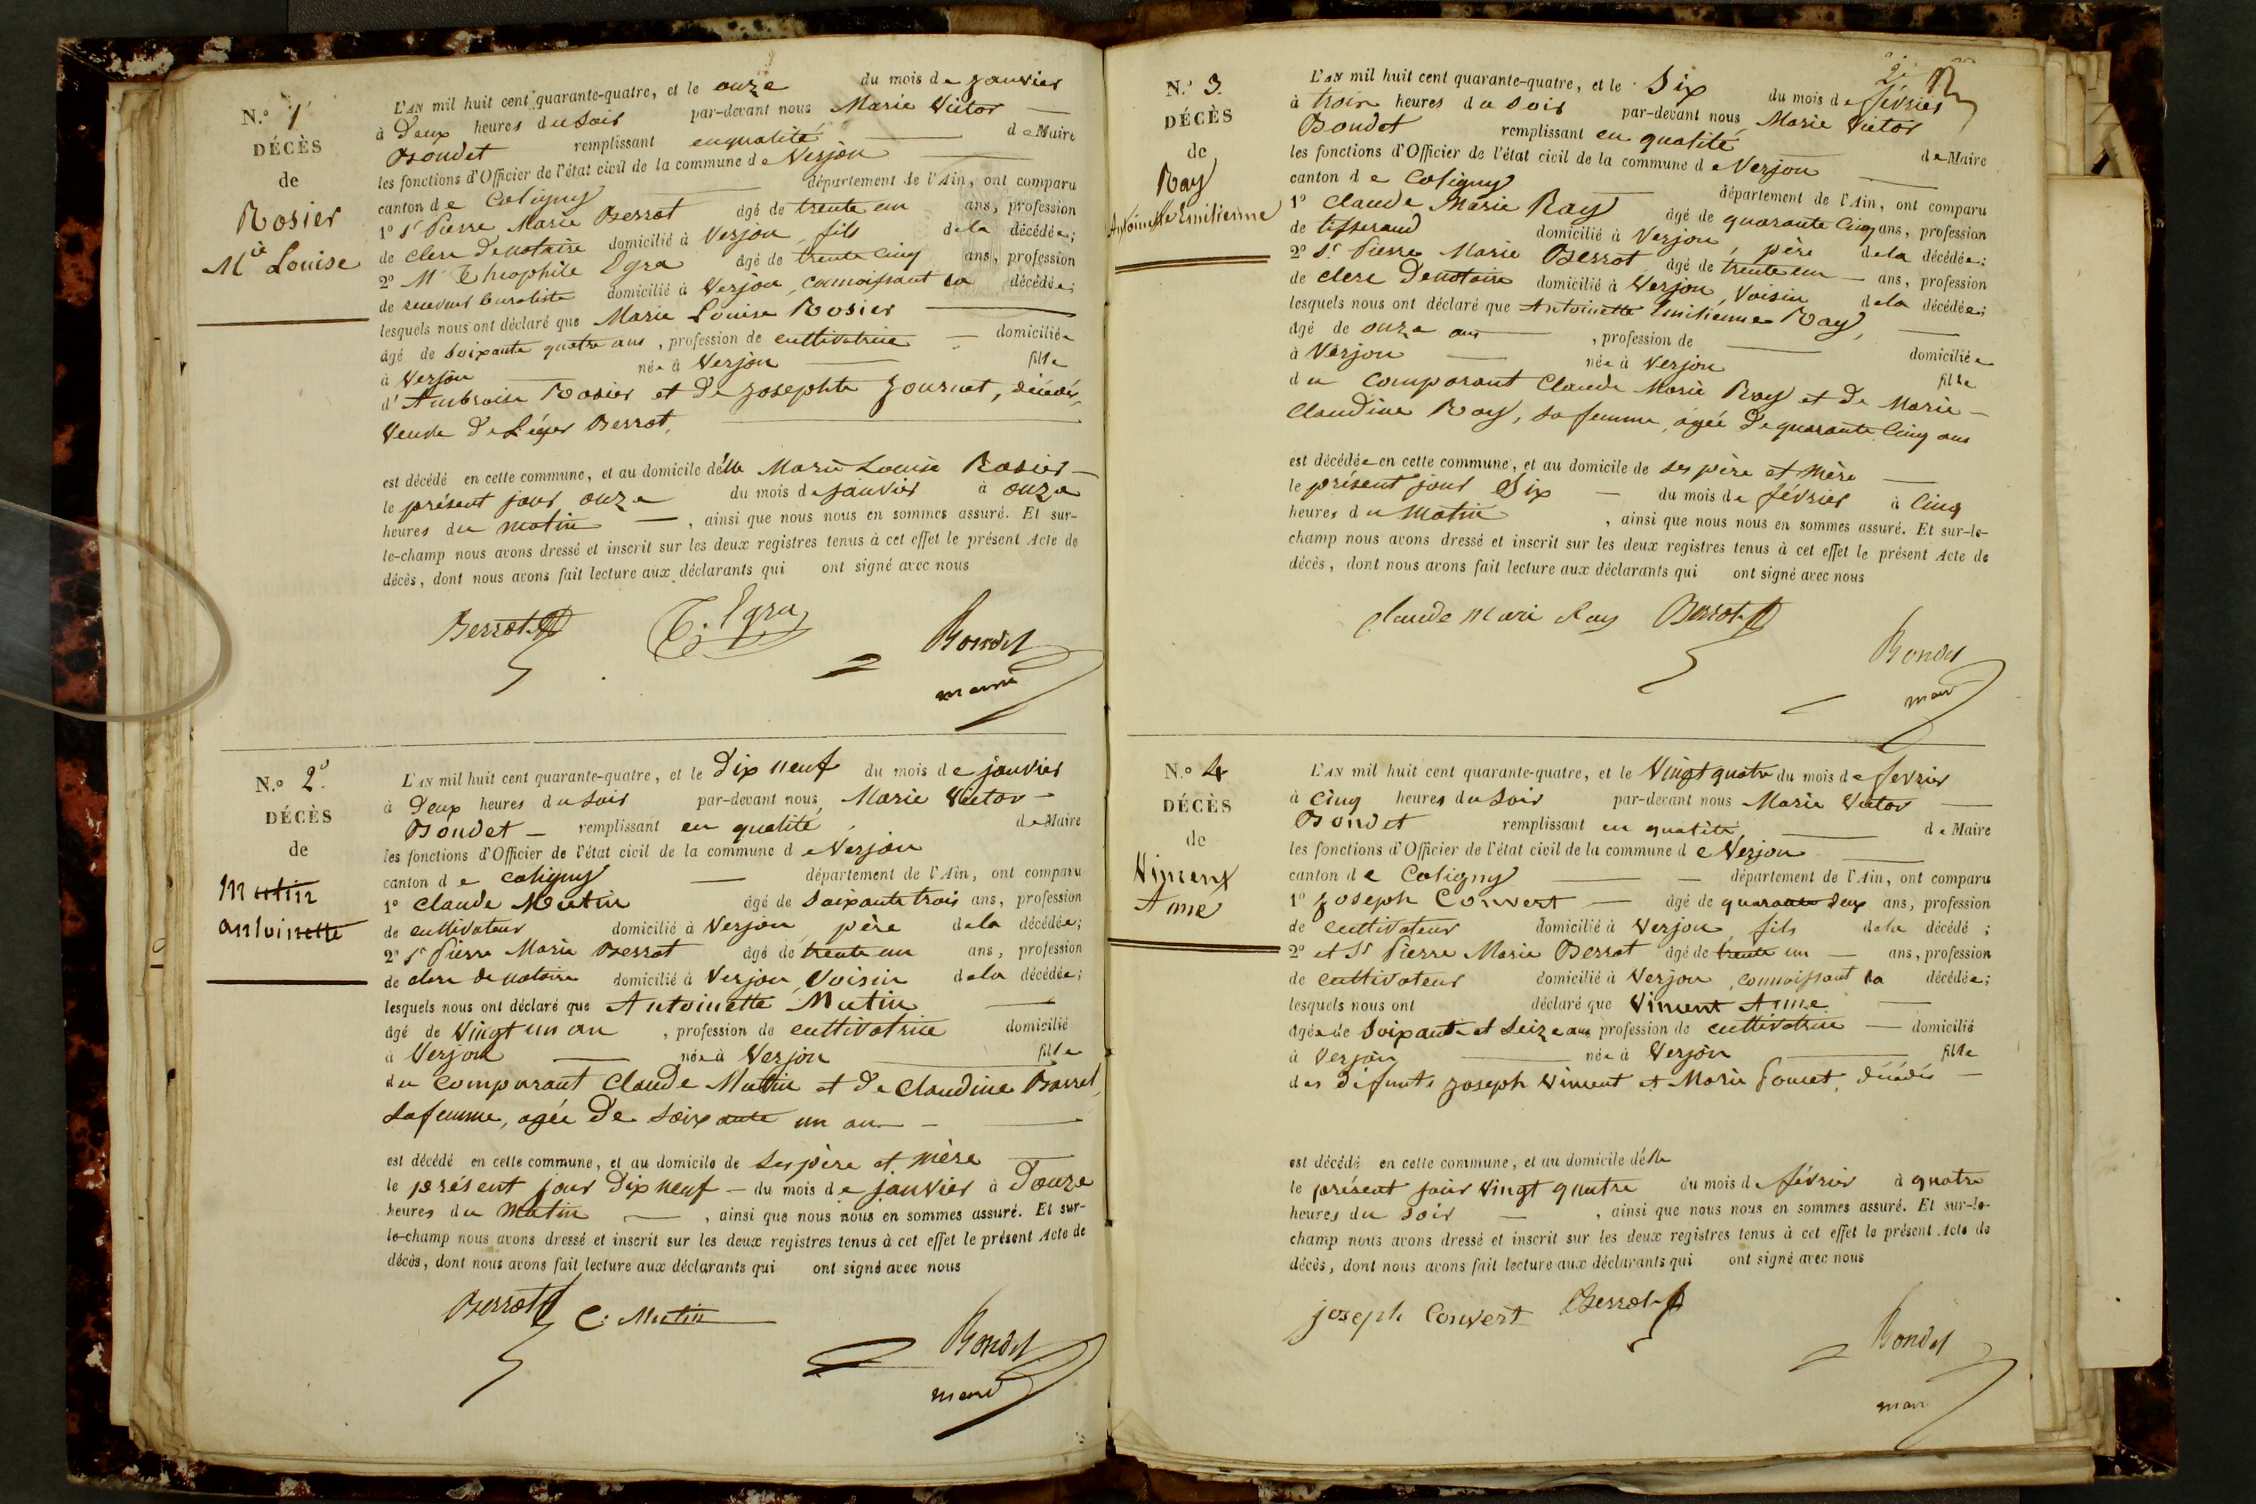 N.º 1
DÉCÈS
de
Rosier
Mie Louise
L'AN mil huit cent quarante-quatre, et le onze du mois de janvier
à Deux heures du soir par-devant nous Marie Victor
Bondet remplissant en qualité de Maire
les fonctions d'Officier de l'état civil de la commune de Verjon
canton de Coligny département de l'Ain, ont comparu
1º Sr Pierre Marie Berrot âgé de trente un ans, profession
de clerc de notaire domicilié à Verjon, fils de la décédée;
2º Mr Théophile Egra âgé de trente cinq ans, profession
de receveur buraliste domicilié à Verjon, connoissant la décédée;
lesquels nous ont déclaré que Marie Louise Rosier
âgé de soixante quatre ans, profession de cultivatrice domiciliée
à Verjon née à Verjon fille
d'Ambroise Rosier et de Josephte Journet, décédés,
Veuve de Léger Berrot,
est décédé en cette commune, et au domicile d'elle Marie Louise Rosier
le présent jour onze du mois de janvier à onze
heures du matin, ainsi que nous nous en sommes assuré. Et sur-
le-champ nous avons dressé et inscrit sur les deux registres tenus à cet effet le présent Acte de
décès, dont nous avons fait lecture aux déclarants qui ont signé avec nous
Berrot
T. Egra
Bondet
maire
N.º 2
DÉCÈS
de
Mutin
antoinette
L'AN mil huit cent quarante-quatre, et le Dix neuf du mois de janvier
à Deux heures du soir par-devant nous Marie Victor
Bondet remplissant en qualité de Maire
les fonctions d'Officier de l'état civil de la commune de Verjon
canton de Coligny département de l'Ain, ont comparu
1º Claude Mutin âgé de soixante trois ans, profession
de cultivateur domicilié à Verjon, père de la décédée;
2º Sr Pierre Marie Berrot âgé de trente un ans, profession
de clerc de notaire domicilié à Verjon, Voisin de la décédée;
lesquels nous ont déclaré que Antoinette Mutin
âgé de Vingt un an, profession de cultivatrice domicilié
à Verjon née à Verjon fille
du comparant Claude Mutin et de Claudine Barret,
sa femme, agée de soixante un an
est décédé en cette commune, et au domicile de ses père et mère
le présent jour Dix neuf du mois de janvier à Douze
heures du matin, ainsi que nous nous en sommes assuré. Et sur-
le-champ nous avons dressé et inscrit sur les deux registres tenus à cet effet le présent Acte de
décès, dont nous avons fait lecture aux déclarants qui ont signé avec nous
Berrot
C. Mutin
Bondet
maire
2
N.º 3.
DÉCÈS
de
Ray
Antoinette Emilienne
L'AN mil huit cent quarante-quatre, et le Six du mois de février
à trois heures du soir par-devant nous Marie Victor
Bondet remplissant en qualité de Maire
les fonctions d'Officier de l'état civil de la commune de Verjon
canton de Coligny département de l'Ain, ont comparu
1º Claude Marie Ray âgé de quarante cinq ans, profession
de tisserand domicilié à Verjon, père de la décédée;
2º Sr. Pierre Marie Berrot âgé de trente un ans, profession
de clerc de notaire domicilié à Verjon, Voisin de la décédée;
lesquels nous ont déclaré que Antoinette Emilienne Ray,
âgé de onze ans, profession de domiciliée
à Verjon née à Verjon fille
du comparant Claude Marie Ray et de Marie
Claudine Ray, sa femme, agée de quarante cinq ans
est décédée en cette commune, et au domicile de ses père et mère
le présent jour Six du mois de février à cinq
heures du matin, ainsi que nous nous en sommes assuré. Et sur-le-
champ nous avons dressé et inscrit sur les deux registres tenus à cet effet le présent Acte de
décès, dont nous avons fait lecture aux déclarants qui ont signé avec nous
Claude mari Ray
Berrot
Bondet
maire
N.º 4
DÉCÈS
de
Anne
L'AN mil huit cent quarante-quatre, et le Vingt quatre du mois de fevrier
à cinq heures du soir par-devant nous Marie Victor
Bondet remplissant en qualité de Maire
les fonctions d'Officier de l'état civil de la commune de Verjon
canton de Coligny département de l'Ain, ont comparu
1º Joseph Convert âgé de quarante deux ans, profession
de cultivateur domicilié à Verjon, fils de la décédé;
2º et Sr Pierre Marie Berrot âgé de trente un ans, profession
de cultivateur domicilié à Verjon, connoissant la décédée;
lesquels nous ont déclaré que Vincent Anne
âgée de soixante et seize ans profession de cultivatrice domicilié
à Verjon née à Verjon fille
des défunts Joseph Vincent et Marie décédés
est décédé en cette commune, et au domicile d'elle
le présent jour vingt quatre du mois de février à quatre
heures du soir, ainsi que nous nous en sommes assuré. Et sur-le-
champ nous avons dressé et inscrit sur les deux registres tenus à cet effet le présent Acte de
décès, dont nous avons fait lecture aux déclarants qui ont signé avec nous
joseph Convert
Berrot
Bondet
maire